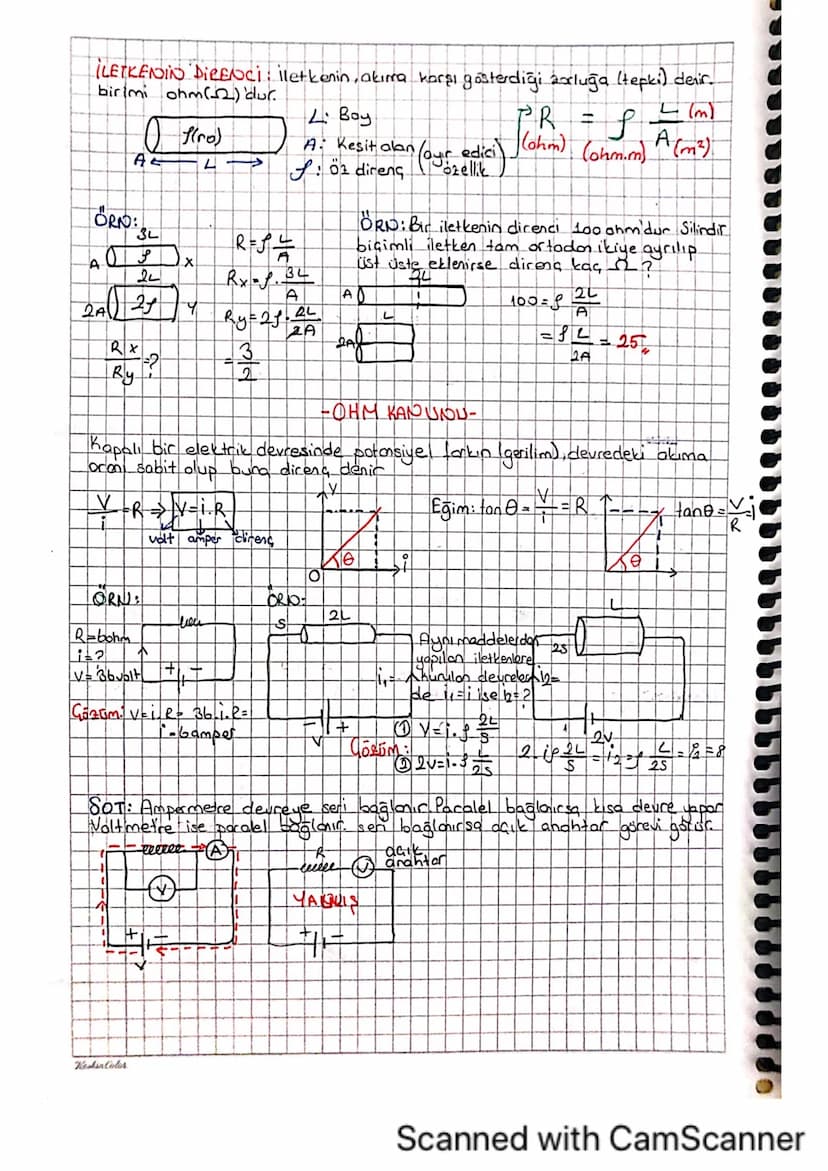 İLETKENİN DİRENCİ: İletkenin, akıma karşı gösterdiği zorluğa (tepki) denir.
birimi ohm(Ω)'dur.
ρ(ro)
A
L
L: Boy
A: Kesit alan
ρ: Öz direnç
(ayır edici özellik)
R = ρ L (m)
A (m²)
(ohm) (ohm.m)
ÖRN:
3L
A ρ X
2L
2A 2ρ Y
Rx
Ry = ?
R = ρ L/A
Rx = ρ. 3L/A
Ry = 2ρ. 2L/2A
= 3/2
ÖRN: Bir iletkenin direnci 100 ohm'dur Silindir
biçimli iletken tam ortadan ikiye ayrılıp
üst üste eklenirse direnç kaç Ω?
2L
A
L
2A
100 = ρ 2L/A
= ρ L/2A = 25
-OHM KANUNU-
Kapalı bir elektrik devresinde potansiyel farkın (gerilim), devredeki akıma
oranı sabit olup buna direnç denir
V/i = R ⇒ V=i.R
volt amper direnç
V
θ
O i
Eğim: tanθ = V/i = R
θ
tanθ = V/R = i
ÖRN:
R=6ohm
i=?
V=36volt
+ -
Çözüm: V=i.R= 36.i.R=
i=6amper
ÖRN:
S 2L
i₁=
- +
V
Aynı maddelerden
yapılan iletkenlere
kurulan devrelerde
de i₁=i ise i₂=?
L
2S
i₂=
2V
Çözüm:
① V=i.ρ 2L/S
② 2V=i.ρ L/2S
2.iρ 2L/S = i₂=ρ L/2S = i₂=8
SOT: Ampermetre devreye seri bağlanır. Paralel bağlanırsa kısa devre yapar
Voltmetre ise paralel bağlanır. seri bağlanırsa açık anahtar görevi görür.
A
V
+ -
V
R
V
açık
anahtar
YANLIŞ
+ -
KeskinColor
Scanned with CamScanner